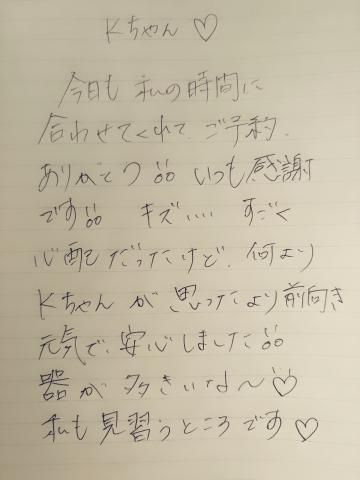 Kちゃん ♡
今日も 私の時間に
合わせてくれて、ご予約、
ありがとう!! いつも感謝
です!! キズ‥‥ すごく
心配だったけど、何より
Kちゃんが 思ったより前向き
元気で、安心しました!!
器が 大きいな〜♡
私も 見習うところです♡